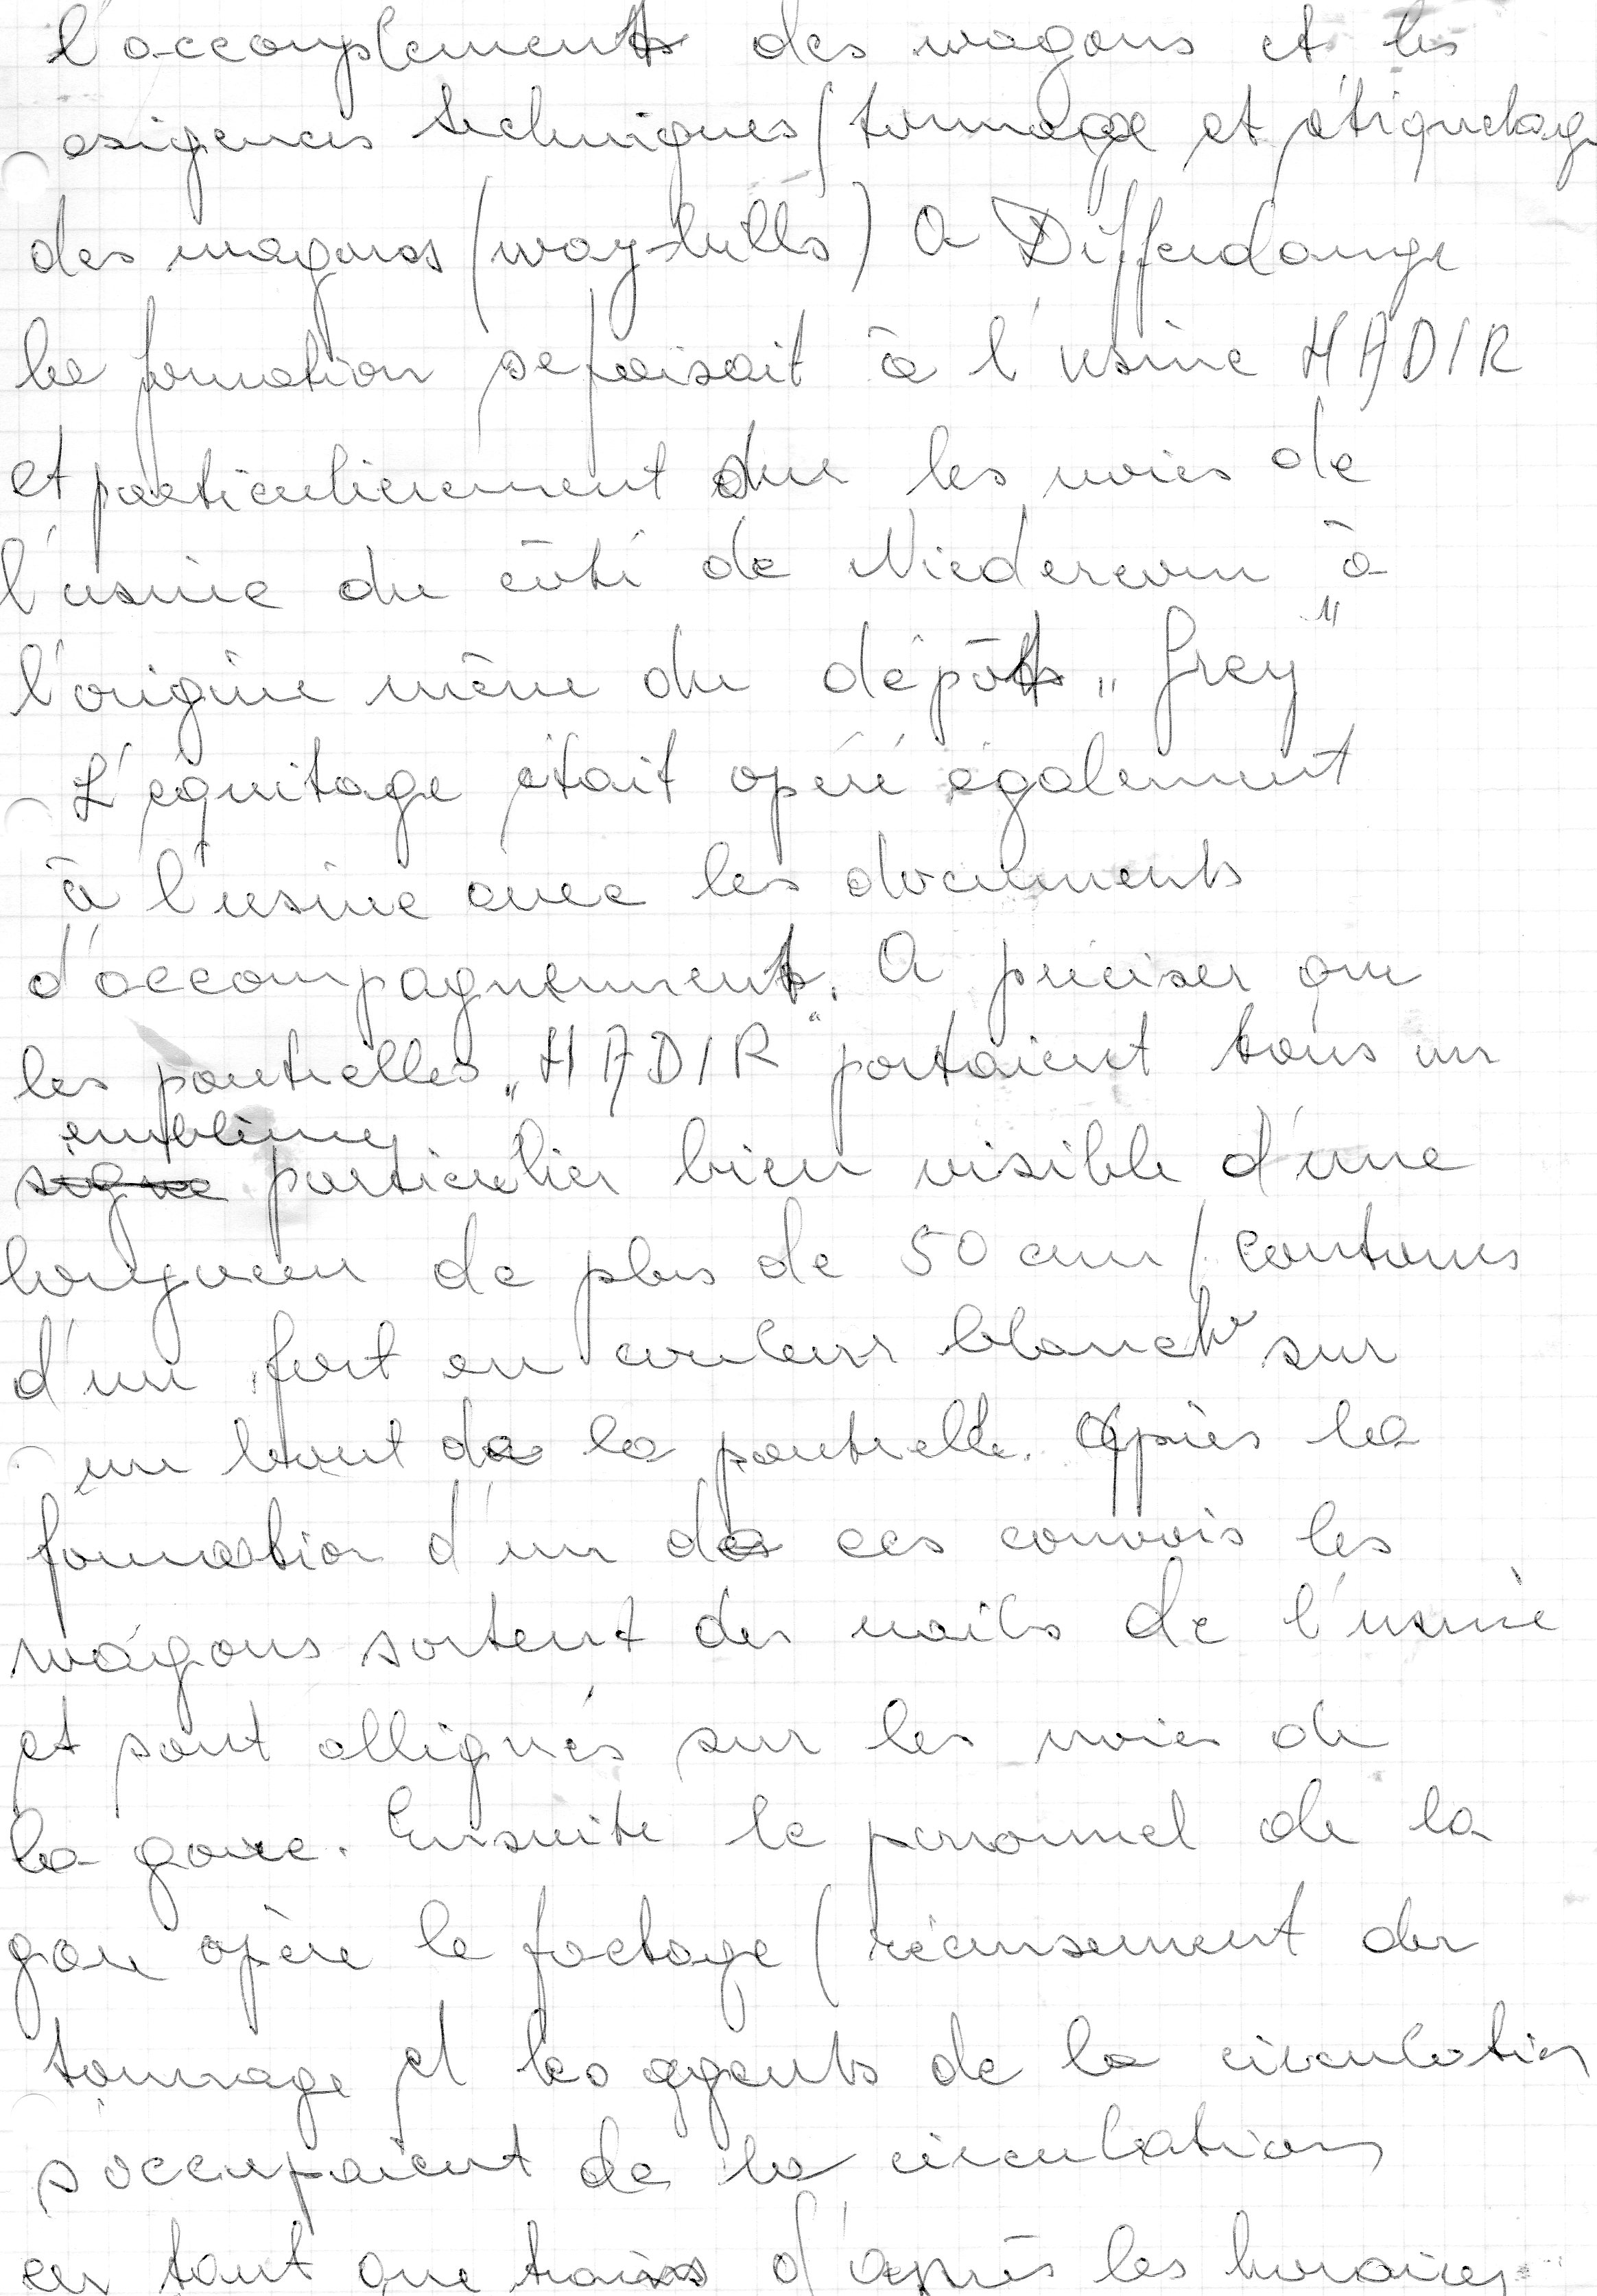 l'accouplement des wagons et les
exigences techniques (tonnage et étiquetag
des wagons (way-bills) A Differdange
la formation se faisait à l'usine HADIR
et particulièrement sur les voies de
l'usine du côté de Niedercorn à
l'origine même du dépôt „Grey"
L'équitage était opéré également
à l'usine avec les documents
d'accompagnement. A préciser que
les poutrelles „HADIR" portaient tous un
emblème
signe particulier bien visible d'une
longueur de plus de 50 cm / contours
d'un fort en couleur blanche sur
un bout de la poutrelle. Après la
formation d'un de ces convois les
wagons sortent des rails de l'usine
et sont alligués sur les voies de
la gare. Ensuite le personnel de la
gare opère le factage (récensement du
tonnage et les agents de la circulation
s'occupaient de la circulation
en tant que trains d'après les horaires